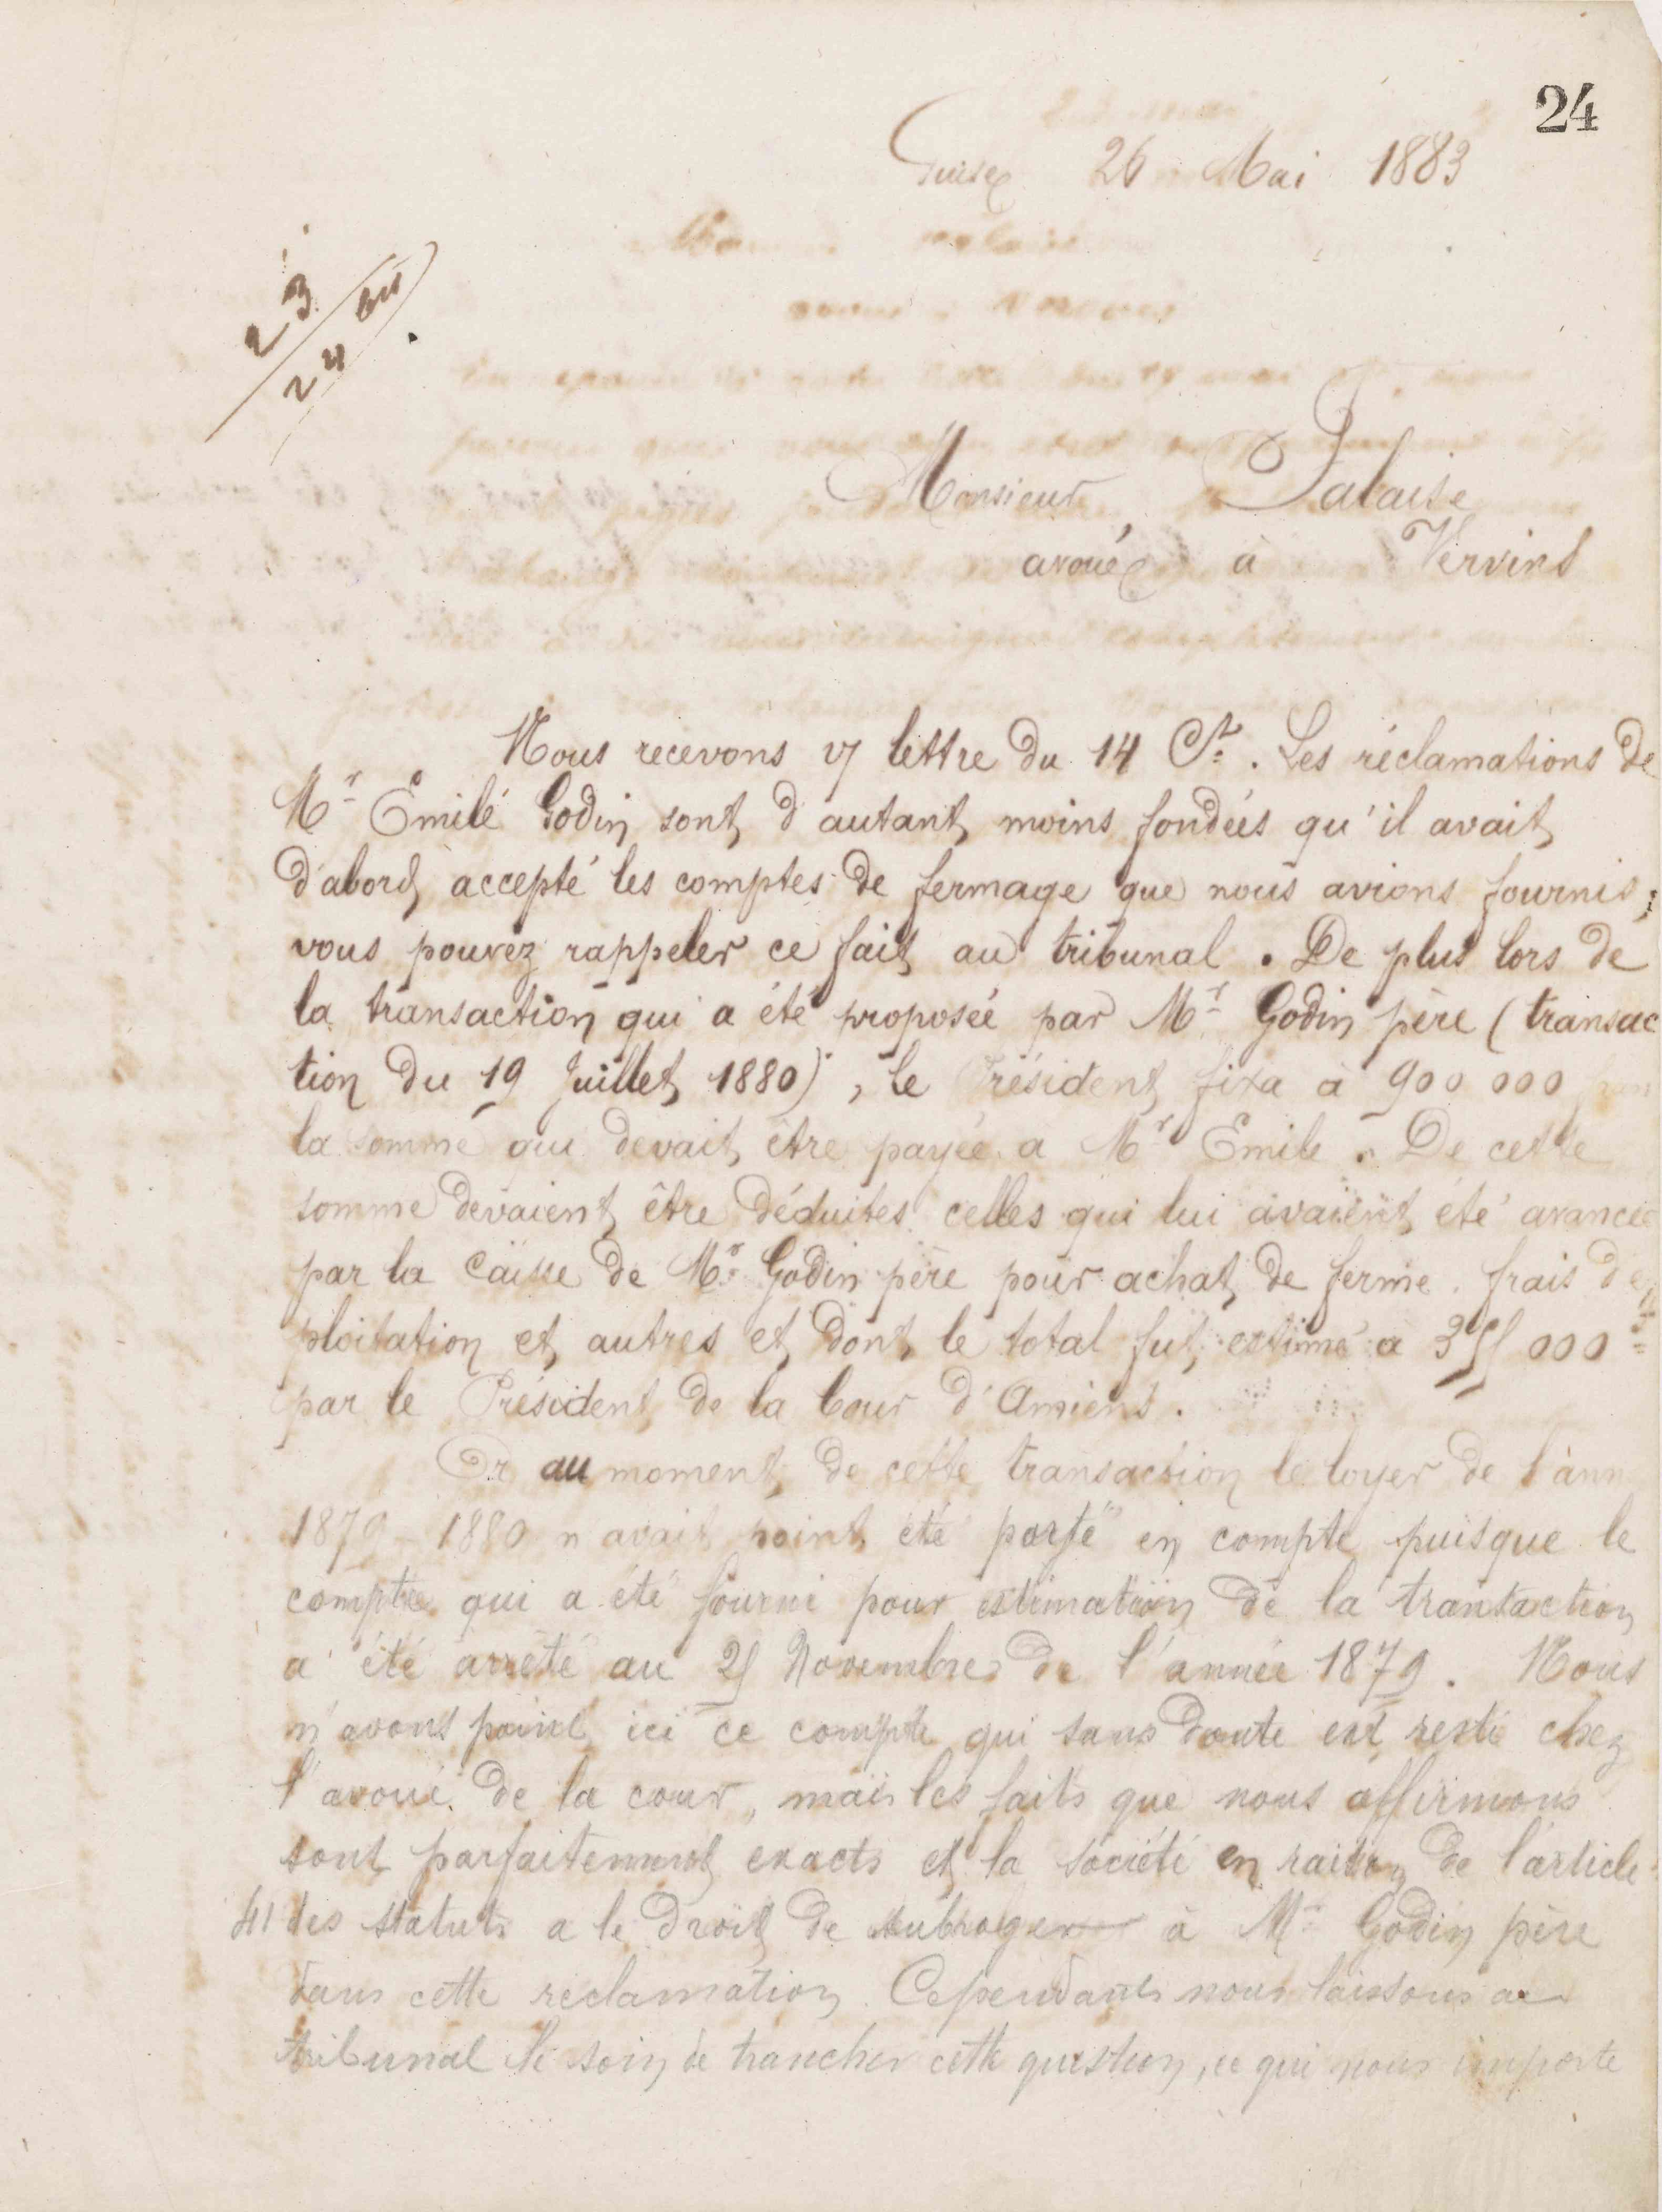 24
Guise 26 Mai 1883
23
24
Monsieur Palaise
avoué à Vervins
Nous recevons v/ lettre du 14 Ct. Les réclamations de
Mr Emile Godin sont d'autant moins fondées qu'il avait
d'abord accepté les comptes de fermage que nous avions fournis;
vous pouvez rappeler ce fait au tribunal. De plus lors de
la transaction qui a été proposée par Mr Godin père (transac
tion du 19 Juillet 1880), le Président fixa à 900 000
la somme qui devait être payée a Mr Emile. De cette
somme devaient être déduites celles qui lui avaient été avancée
par la Caisse de Mr Godin père pour achat de ferme. frais d'e
ploitation et autres et dont le total fut estimé à 000
par le Président de la Cour d'Amiens.
Or au moment de cette transaction le loyer de l'ann
1879-1880 n'avait point été porté en compte puisque le
compte qui a été fourni pour estimation de la transaction
a été arrêté au Novembre de l'année 1879. Nous
n'avons point ici ce compte qui sans doute est resté chez
l'avoué de la cour, mais les faits que nous affirmons
sont parfaitement exacts et la société en raison de l'article
41 des statuts a le droit de subroger à Mr Godin père
dans cette réclamation. Cependant nous laissons au
tribunal le soin de trancher cette question, ce qui nous importe